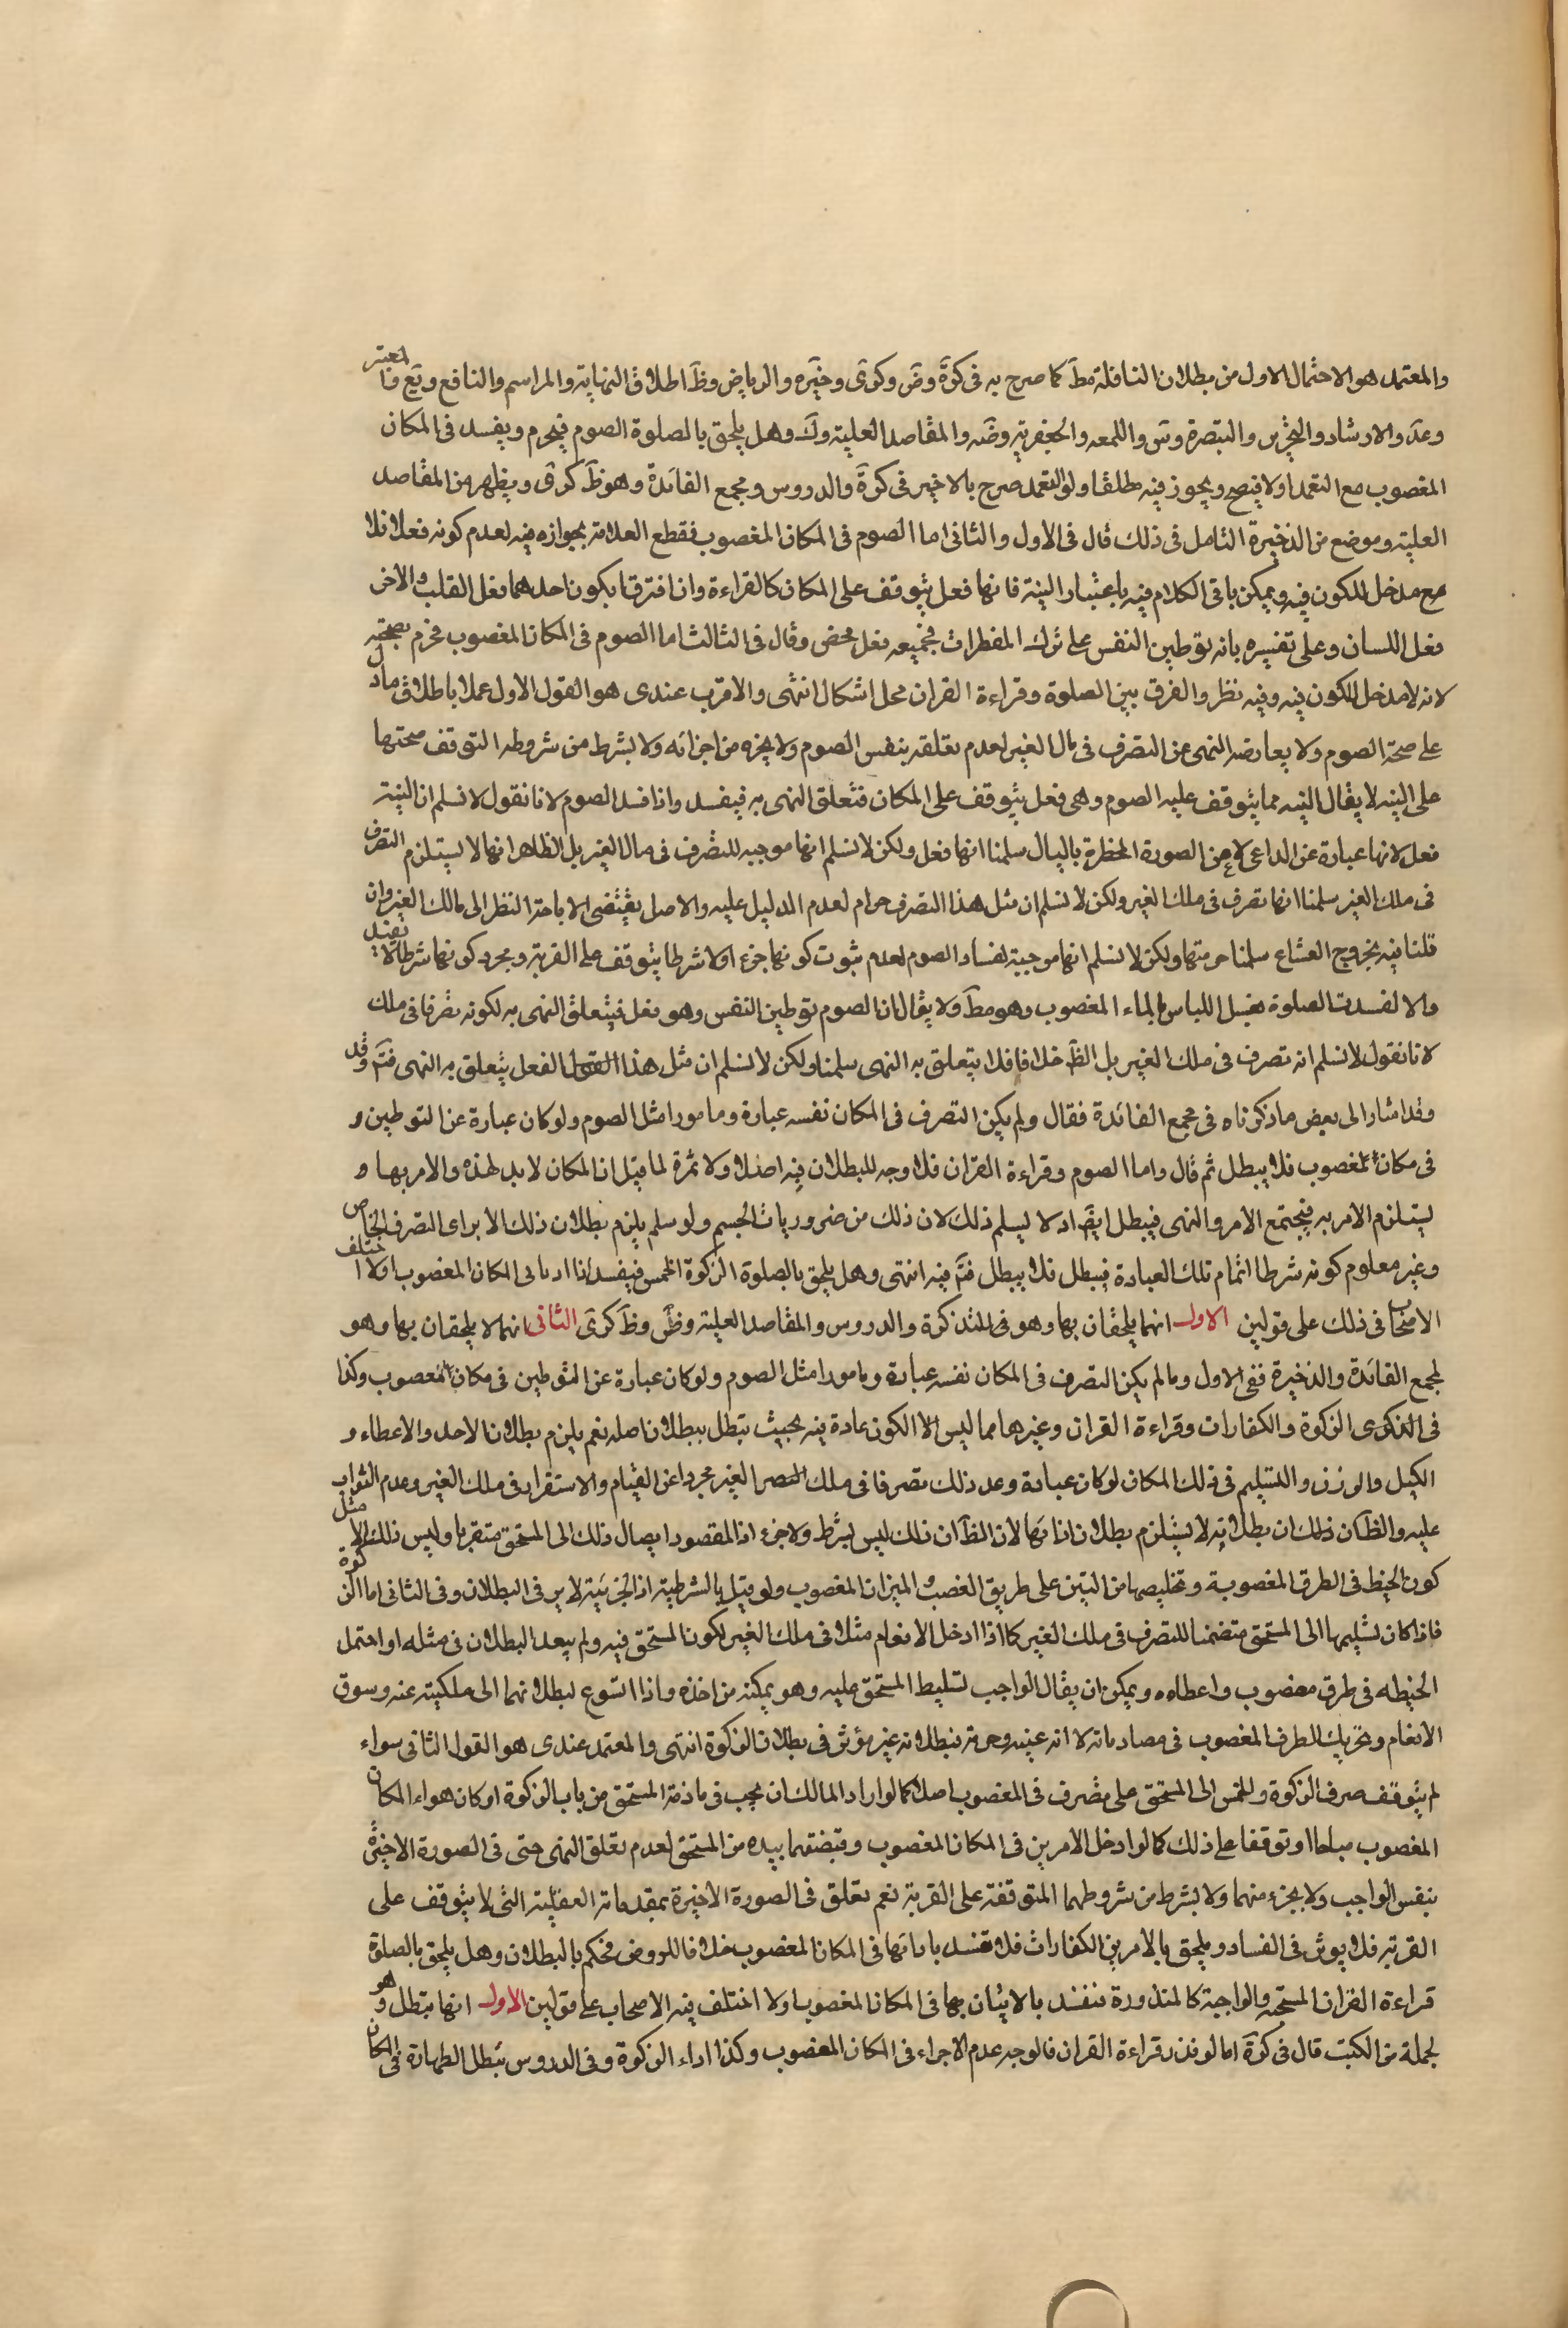 والمعتمد هو الاحتمال الاول من بطلان النافلة مطَ كما صرح به فى كرَة وضَ وكرَى وخيَره والرياض وظَ اطلاق النهاية والمراسم والنافع ويَع ونا المعتبر
وعدَ والارشاد والتحرير والتبصرة وس واللمعه والجعفرية وضَه والمقاصد العلية وكَ وهل يلحق بالصلوة الصوم فيحرم ويفسد فى المكان
المغصوب مع التعمد اولا فيصح ويجوز فيه مطلقا ولو التعمد صرح بالاخير فى كرَة والدروس ومجمع الفائدة وهو ظَ كرَى ويظهر من المقاصد
العلية وموضع من الذخيرة التامل فى ذلك قال فى الاول والثانى اما الصوم فى المكان المغصوب فقطع العلامة بجوازه فيه لعدم كونه فعلا فلا
مدخل للكون فيه ويمكن باقى الكلام فيه باعتبار النية فانها فعل يتوقف على المكان كالقراءة وان افترقا بكون احدهما فعل القلب والاخر
فعل اللسان وعلى تفسيره بانه توطين النفس على ترك المفطرات فجميعه فعل محض وقال فى الثالث اما الصوم فى المكان المغصوب فجزم بصحته
لانه لا مدخل للكون فيه وفيه نظر والفرق بين الصلوة وقراءة القران محل اشكال انتهى والاقرب عندى هو القول الاول عملا باطلاق ما دل
على صحة الصوم ولا يعارضه النهى عن التصرف فى مال الغير لعدم تعلقه بنفس الصوم ولا بجزء من اجزائه ولا بشرط من شروطه المتوقف صحتها
على النية لا يقال النيه مما يتوقف عليه الصوم وهى فعل يتوقف على المكان فتعلق النهى به فيفسد واذا فسد الصوم لانا نقول لا نسلم ان النية
فعل لانها عبارة عن الداعى لا عن الصورة المخطرة بالبال سلمنا انها فعل ولكن لا نسلم انها موجبه للتصرف فى مال الغير بل الظاهر انها لا يستلزم التصرف
فى ملك الغير سلمنا انها تصرف فى ملك الغير ولكن لا نسلم ان مثل هذا التصرف حرام لعدم الدليل عليه والاصل يقتضى الاباحة النظر الى مالك الغير وان
قلنا فيه بخروج الشعاع سلمنا حرمتها ولكن لا نسلم انها موجبة لفساد الصوم لعدم ثبوت كونها جزء اولا شرطا يتوقف على القربة ومجرد كونها شرطا لا يفيد
والا لفسدت الصلوة بغسل اللباس بالماء المغصوب وهو مطَ ولا يقال ان الصوم توطين النفس وهو فعل فيتعلق النهى به لكونه تصرفا فى ملك
لانا نقول لا نسلم انه تصرف فى ملك الغير بل الظَ خلافا فلا يتعلق به النهى سلمنا ولكن لا نسلم ان مثل هذا الفعل يتعلق به النهى فتمَ وقد
وقد اشار الى بعض ما ذكرناه فى مجمع الفائدة فقال ولم يكن التصرف فى المكان نفسه عبارة ومامورا مثل الصوم ولو كان عبارة عن التوطين و
فى مكان المغصوب فلا يبطل ثم قال واما الصوم وقراءة القران فلا وجه للبطلان فيه اصلا ولا ثمرة لما قيل ان المكان لابد لهذه والامر بها و
يستلزم الامر به فيجتمع الامر والنهى فيبطل ايضَ اد لا يسلم ذلك لان ذلك من ضروريات الجسم ولو سلم يلزم بطلان ذلك الابراى التصرف الخاص
وغير معلوم كونه شرطا اتمام تلك العبادة فيبطل فلا يبطل فتمَ فيه انتهى وهل يلحق بالصلوة الزكوة الخمس فيفسد اذا اديا فى المكان المغصوب اولا اختلف
الاصحاب فى ذلك على قولين الاول انهما يلحقان بها وهو فى التذكرة والدروس والمقاصد العلية وظَ كرَى الثانى انهما لا يلحقان بها وهو
لمجمع الفائدة والذخيرة ففى الاول وما لم يكن التصرف فى المكان نفسه عبادة ومامورا مثل الصوم ولو كان عبارة عن التوطين فى مكان المغصوب وكذا
فى الذكرى الزكوة والكفارات وقراءة القران وغيرها مما ليس الا الكون عادة فيه بحيث يبطل ببطلان اصله نعم يلزم بطلان الاخذ والاعطاء و
الكيل والوزن والتسليم فى ذلك المكان لو كان عبادة وعد ذلك تصرفا فى ملك الغير مجردا عن القيام والاستقرار فى ملك الغير وعدم الثواب
عليه والظَ كان ذلك ان بطلانه لا يستلزم بطلان اتانها لان الظَ ان ذلك ليس بشرط ولا جزء اذ المقصود ايصال ذلك الى المستحق متقربا وليس ذلك الا مثل
كون الحيط فى الطرق المغصوبة وتخليصها من التبن على طريق الغصب والميزان المغصوب ولو قيل بالشرطية اذ الجزئية لاير فى البطلان وفى الثانى اما الزكوة
فاذا كان تسليمها الى المستحق متضمنا للتصرف فى ملك الغير كما اذا ادخل الانعام مثلا فى ملك الغير لكون المستحق فيه ولم يبعد البطلان فى مثله او احتمل
الحنيطه فى طرق مغصوب واعطاه ويمكن ان يقال الواجب تسليط المستحق عليه وهو يمكنه من اخذه واذا اتسوع لبطلانهما الى ملكيته عنه وسوق
الانعام وتحريك الطرف المغصوب فى مصاد ماته لا انه عينه وحرمة فبطلانه غير مؤثر فى بطلان الزكوة انتهى والمعتمد عندى هو القول الثانى سواء
لم يتوقف صرف الزكوة والخمس الى المستحق على تصرف فى المغصوب اصلا كما لو اراد المالك ان يحسب فى ما ذمة المستحق من باب الزكوة او كان هواء المكان
المغصوب مباحا او توقفا على ذلك كما لو ادخل الامرين فى المكان المغصوب وقبضهما بيده من المستحق لعدم تعلق النهى حتى فى الصورة الاخيرة
بنفس الواجب ولا بجزء منهما ولا بشرط من شروطهما المتوقفة على القربة نعم تعلق فى الصورة الاخيرة بمقدماته العقلية التى لا يتوقف على
القربة فلا يوثر فى الفساد ويلحق بالامرين الكفارات فلا تفسد باداتها فى المكان المغصوب خلافا للروض فحكم بالبطلان وهل يلحق بالصلوة
قراءة القران المستحبة والواجبة كالمنذورة فتفسد بالاتيان بها فى المكان المغصوب اولا اختلف فيه الاصحاب على قولين الاول انها تبطل وهو
لجملة من الكتب قال فى كرَة اما لو نذر قراءة القران فالوجه عدم الاجزاء فى المكان المغصوب وكذا اداء الزكوة وفى الدروس تبطل الطهارة فى المكان